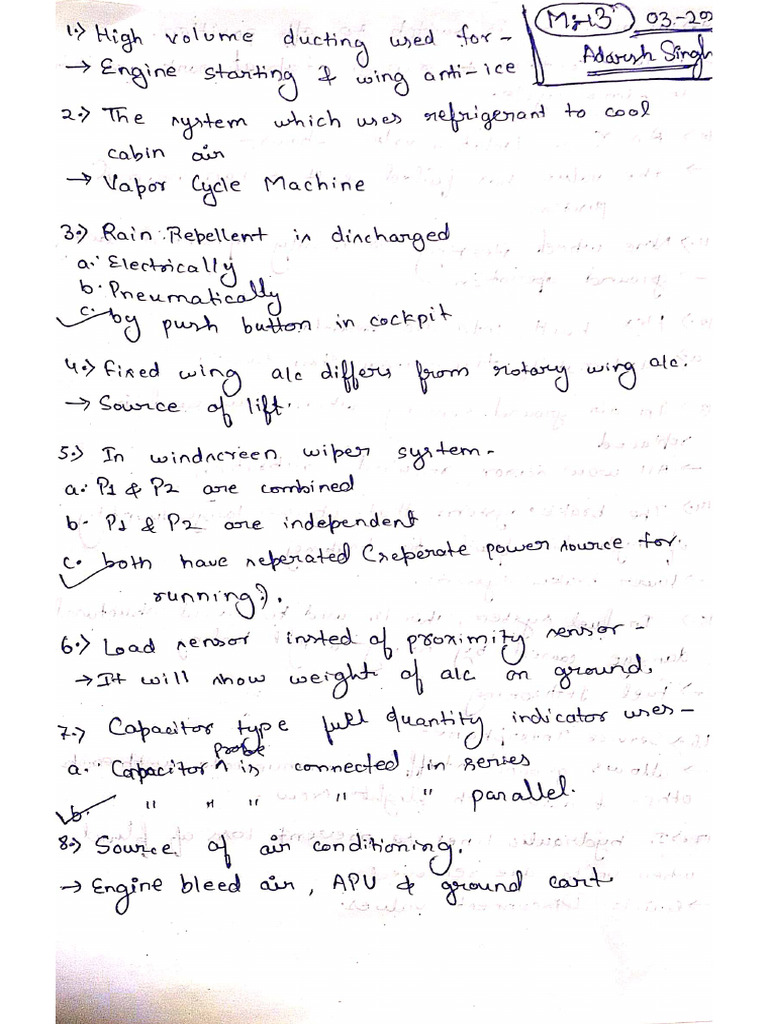 M-13 03-20
Adarsh Singh
1.) High volume ducting used for-
→ Engine starting & wing anti-ice
2.) The system which uses refrigerant to cool
cabin air
→ Vapor Cycle Machine
3.) Rain Repellent is discharged
a. Electrically
b. Pneumatically
c. by push button in cockpit
4.) Fixed wing a/c differs from rotary wing a/c.
→ Source of lift.
5.) In windscreen wiper system-
a. P1 & P2 are combined
b. P1 & P2 are independent
c. both have seperated (seperate power source for
running).
6.) Load sensor insted of proximity sensor-
→ It will show weight of a/c on ground.
7.) Capacitor type full quantity indicator uses-
a. Capacitor ^ probe is connected in series
b. " " " " " parallel.
8.) Source of air conditioning.
→ Engine bleed air, APU & ground cart